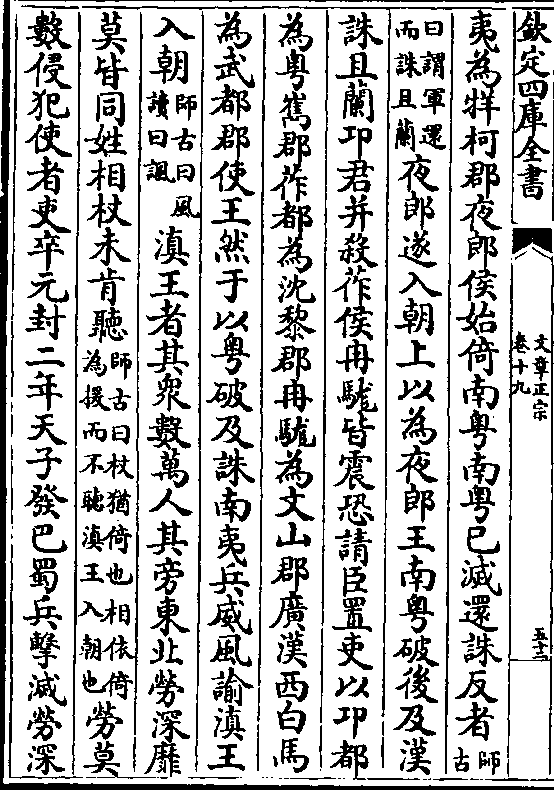 欽定四庫全書
文章正宗
卷十九
五十三
夷為牂柯郡夜郎侯始倚南粤南粤已滅還誅反者師古
曰謂軍還而誅且蘭夜郎遂入朝上以為夜郎王南粤破後及漢
誅且蘭卭君并殺莋侯冉駹皆震恐請臣置吏以卭都
為粤嶲郡莋都為沈黎郡冉駹為文山郡廣漢西白馬
為武都郡使王然于以粤破及誅南夷兵威風諭滇王
入朝師古曰風讀曰諷滇王者其衆數萬人其旁東北勞深靡
莫皆同姓相杖未肯聽師古曰杖猶倚也相依倚為援而不聽滇王入朝也勞莫
數侵犯使者吏卒元封二年天子發巴蜀兵擊滅勞深